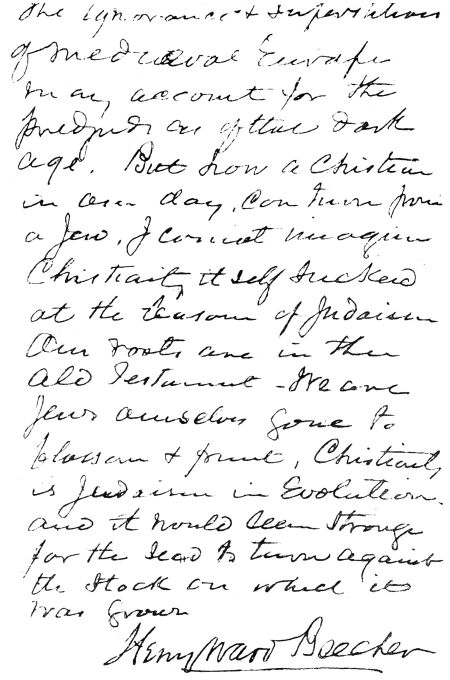 The ignorance & superstition
of mediaeval Europe
may account for the
predjudices of that dark
age. But how a Christian
in our day, can turn from
a Jew, I cannot imagine
Christianity itself sucked
at the bosom of Judaism
Our roots are in the
Old Testament - We are
Jews ourselves gone to
blossom & fruit, Christianity
is Judaism in Evolution.
and it would seem strange
for the seed to turn against
the stock on which it
was grown
Henry Ward Beecher